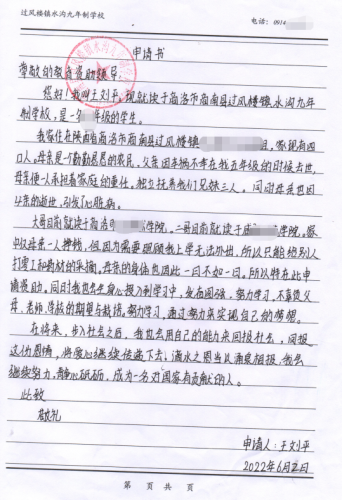 过风楼镇水沟九年制学校 电话：0914
申请书
尊敬的教育资助领导：
您好！我叫王刘平，现就读于商洛市商南县过风楼镇水沟九年
制学校，是一名 年级的学生。
我家住在陕西省商洛市商南县过风楼镇 组，家现有四
口人。母亲是一个勤勤恳恳的农民，父亲因车祸不幸在我五年级的时候去世，
母亲便一人承担着家庭的重任，独立抚养我们兄妹三人。同时母亲也因
父亲的逝世，引发了心脏病。
大哥目前就读于商洛 学院，二哥目前就读于 学院。家
中仅母亲一人挣钱，但因为需要照顾我上学无法外出，所以只能给别人
打零工和药材的采摘。母亲的身体也因此一日不如一日。所以特在此申
请资助。同时我也会全身心投入到学习中，发奋图强，努力学习，不辜负父
母、老师、学校的期望与栽培。努力学习，通过努力来实现自己的梦想。
在将来，步入社会之后，我也会用自己的能力来回报社会，回报
这份恩情，将爱心继续传递下去；滴水之恩当以涌泉相报，我会
继续努力，静心砥砺，成为一名对国家有贡献的人。
此致
敬礼
申请人：王刘平
2022年6月 日
第 页 共 页